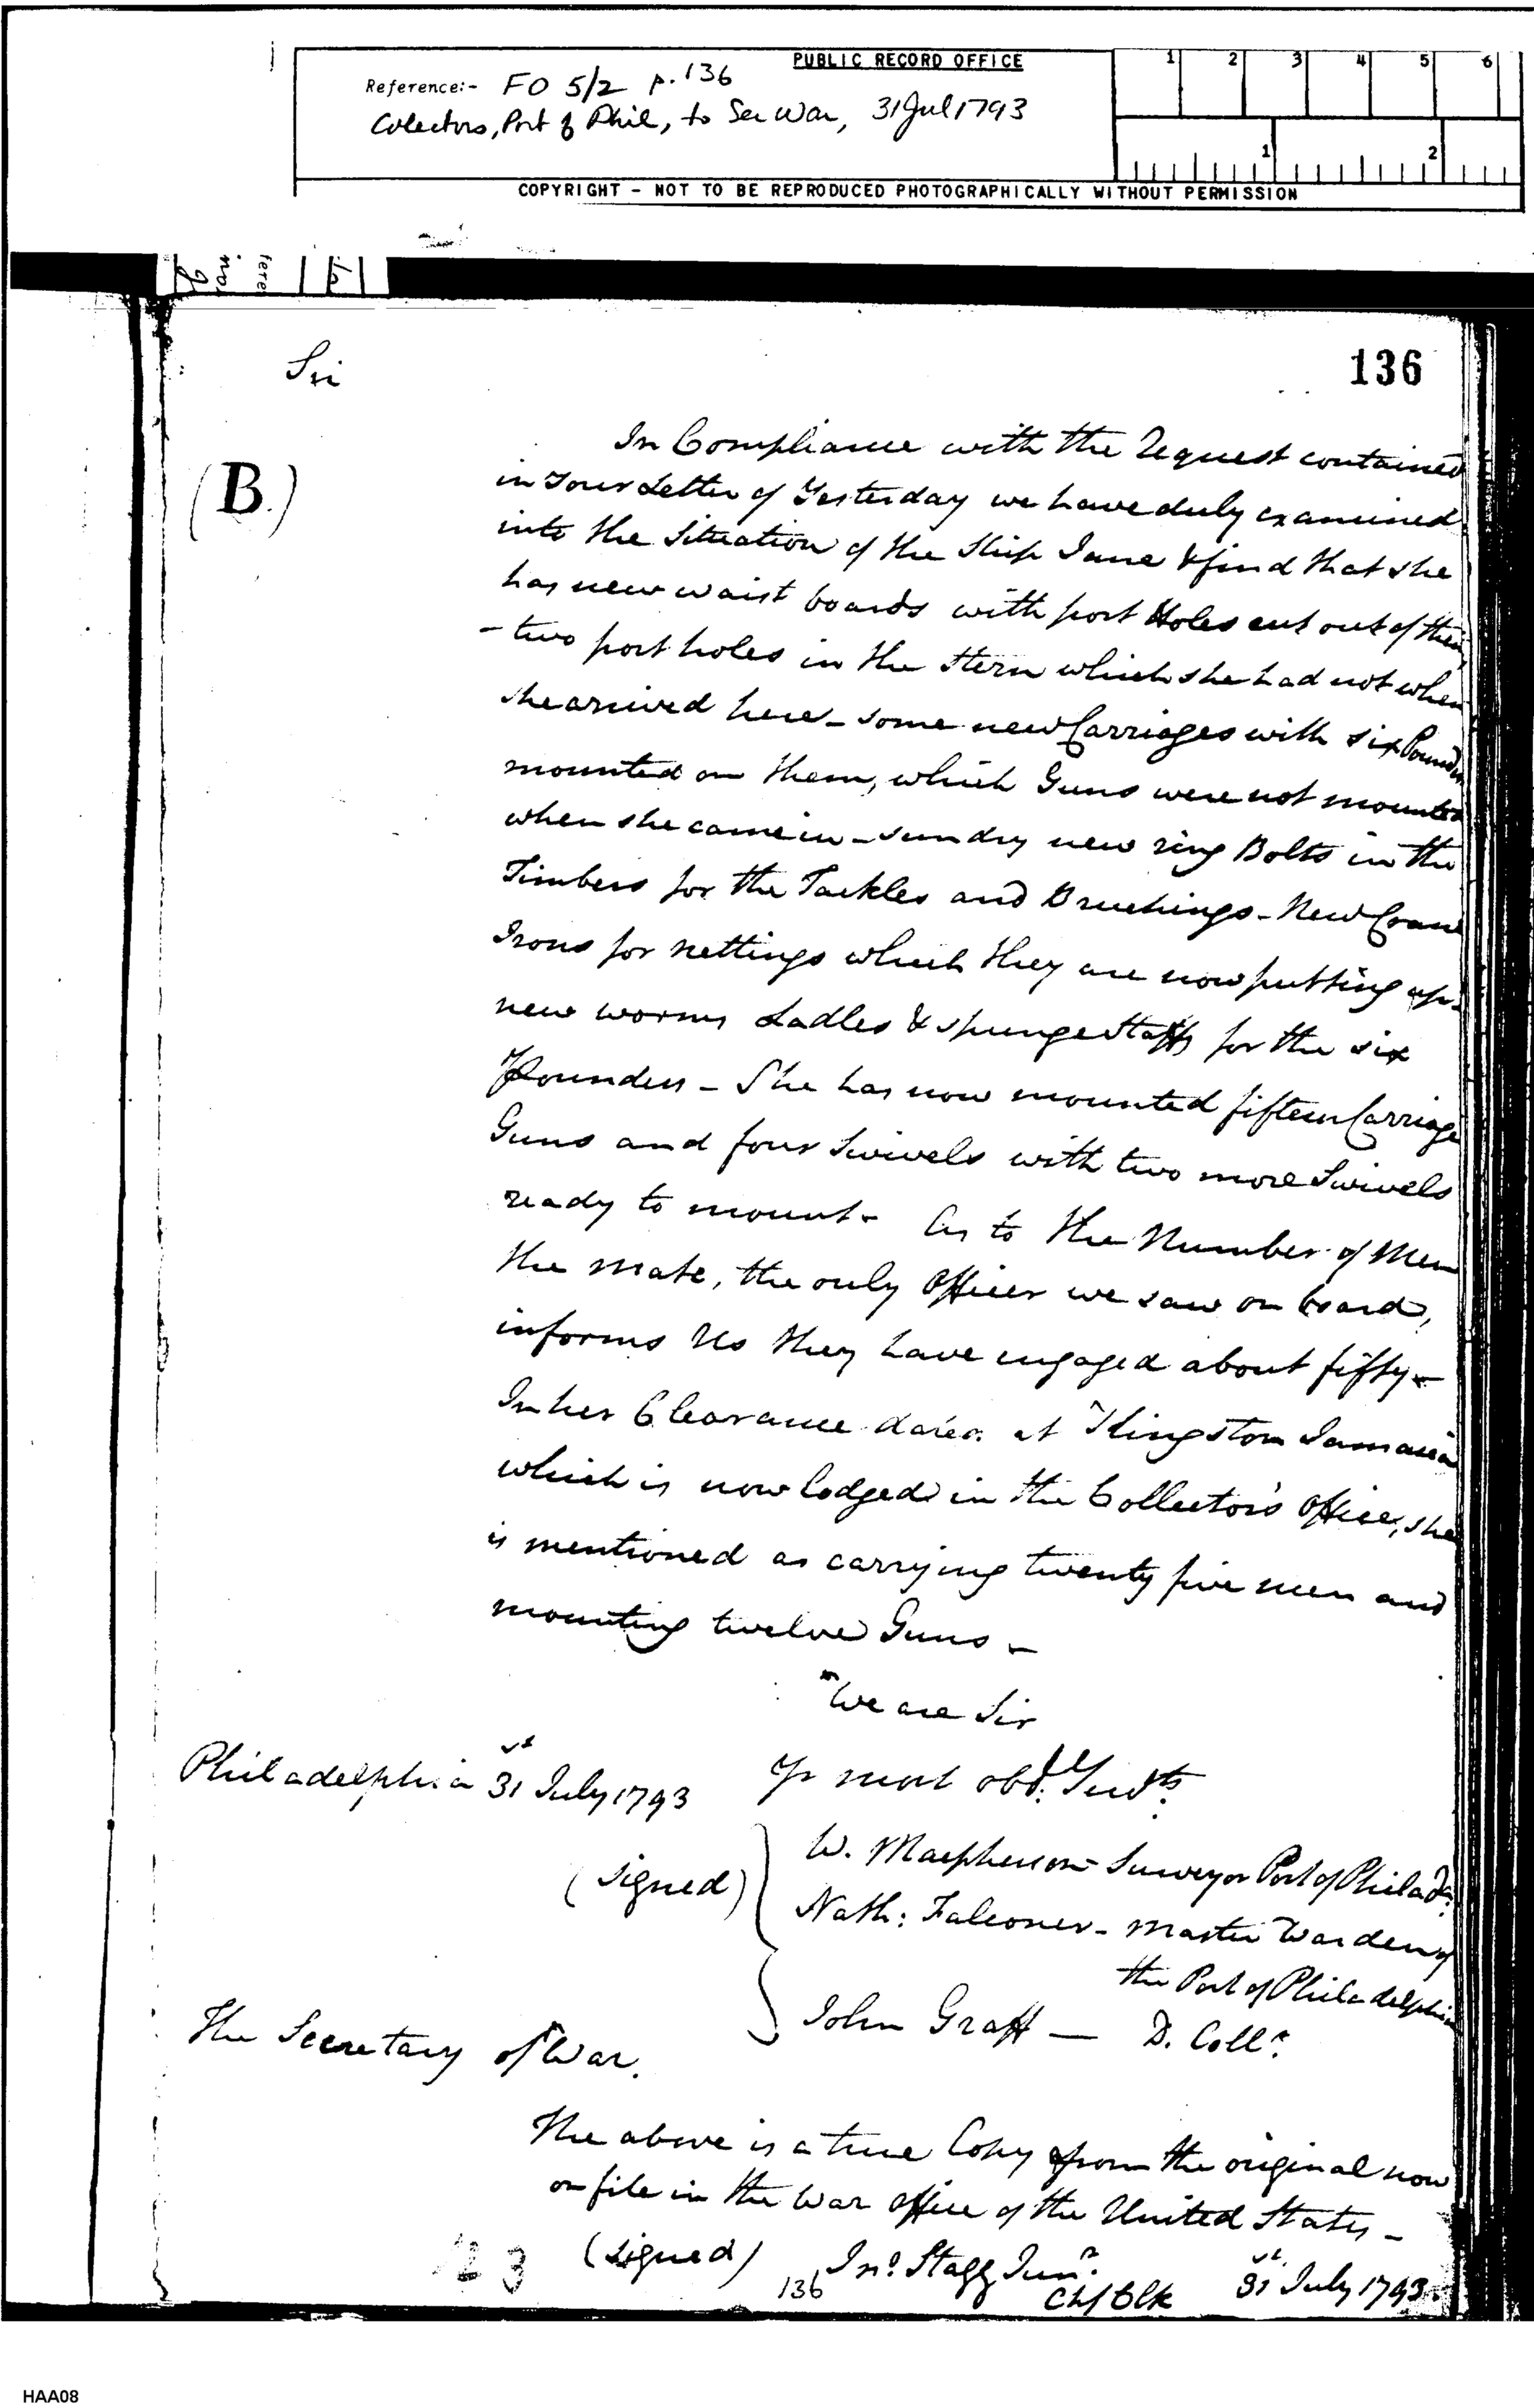 PUBLIC RECORD OFFICE
Reference:- FO 5/2 p.136
Colectors, Port of Phil, to Sec War, 31 Jul 1793
1 2 3 4 5 6
1 2
COPYRIGHT - NOT TO BE REPRODUCED PHOTOGRAPHICALLY WITHOUT PERMISSION
136
Sir
(B.)
In Compliance with the Request contained
in your Letter of Yesterday we have duly examined
into the Situation of the Ship Jane & find that she
has new waist boards with port Holes cut out of them,
- two port holes in the Stern which she had not when
she arrived here - some new Carriages with six Pounders
mounted on them, which Guns were not mounted
when she came in - sundry new ring Bolts in the
Timbers for the Tackles and Breechings - New Crane
Irons for nettings which they are now putting up -
new worms Ladles & spunge Staffs for the six
Pounders - She has now mounted fifteen Carriage
Guns and four Swivels with two more Swivels
ready to mount - As to the Number of Men
the mate, the only Officer we saw on board,
informs Us they have engaged about fifty -
In her Clearance dated at Kingston Jamaica
which is now lodged in the Collector's Office, she
is mentioned as carrying twenty five men and
mounting twelve Guns -
We are Sir
Yr most obd. Servts.
Philadelphia 31st July 1793
(signed)
W. Macpherson - Surveyor Port of Philada.
Nath: Falconer - Master Warden of
the Port of Philadelphia
John Graff — D. Collr.
The Secretary of War.
The above is a true Copy from the original now
on file in the War Office of the United States -
(signed) Jno. Stagg Junr.
Chf Clk 31st July 1793.
136
HAA08